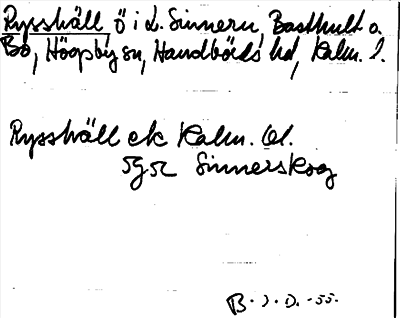 Rysshäll, ö i L. Sinnern, Basthult o.
Bo, Högsby sn, Handbörds hd, Kalm. l.
Rysshäll ek Kalm. bl.
5g5c Sinnerskog
B. J. D. -55.